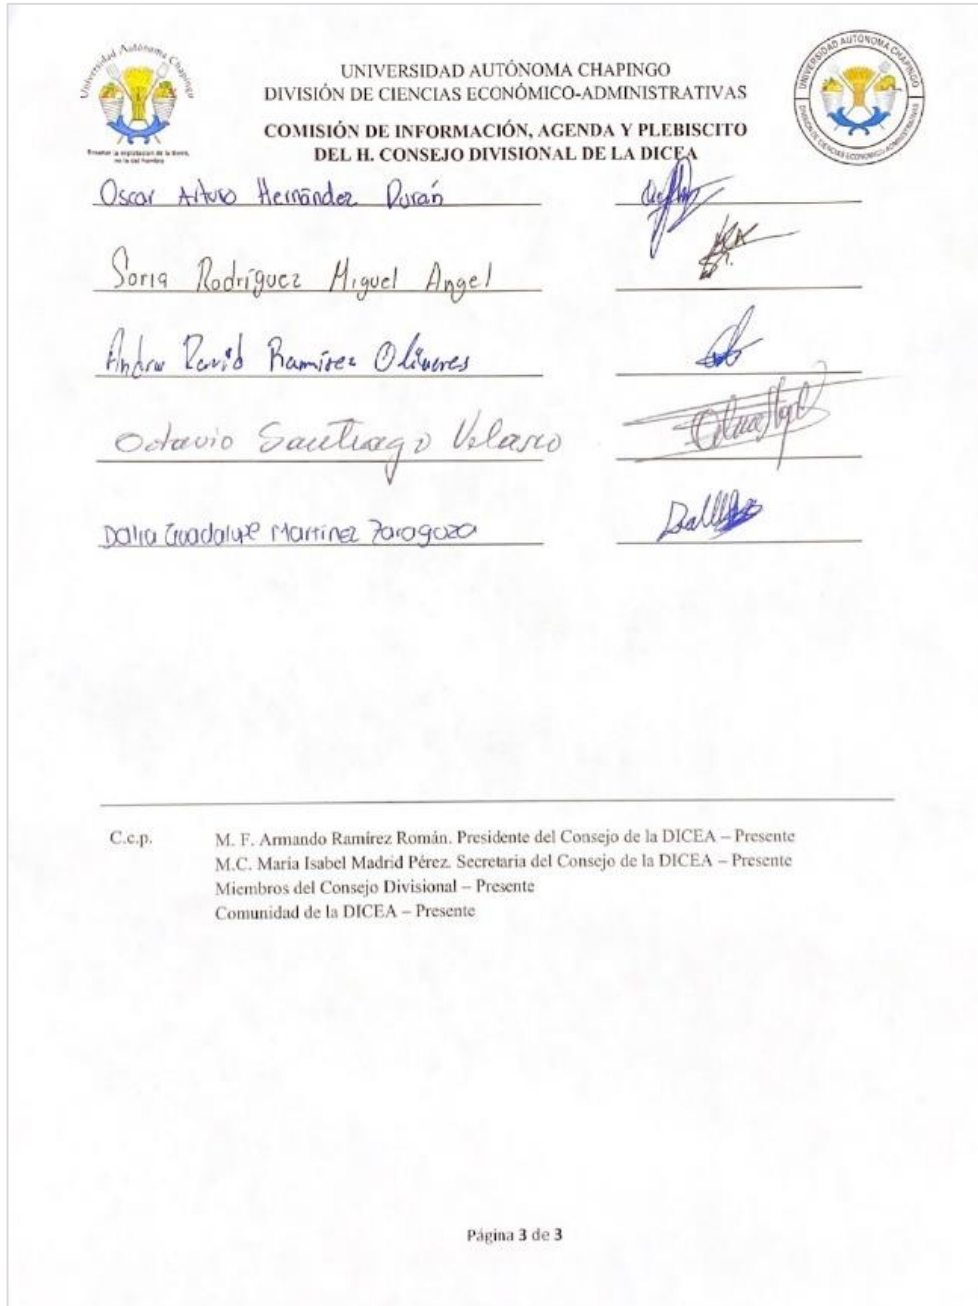 Universidad Autónoma Chapingo
Enseñar la explotación de la tierra,
no la del hombre
UNIVERSIDAD AUTÓNOMA CHAPINGO
DIVISIÓN DE CIENCIAS ECONÓMICO-ADMINISTRATIVAS
UNIVERSIDAD AUTÓNOMA CHAPINGO
DIVISIÓN DE CIENCIAS ECONÓMICO-ADMINISTRATIVAS
COMISIÓN DE INFORMACIÓN, AGENDA Y PLEBISCITO
DEL H. CONSEJO DIVISIONAL DE LA DICEA
Oscar Arturo Hernández Durán
Soria Rodríguez Miguel Angel
David Ramírez Oliveres
Octavio Santiago Velasco
Dalia Guadalupe Martinez Zaragoza
C.c.p. M. F. Armando Ramírez Román. Presidente del Consejo de la DICEA – Presente
M.C. María Isabel Madrid Pérez. Secretaria del Consejo de la DICEA – Presente
Miembros del Consejo Divisional – Presente
Comunidad de la DICEA – Presente
Página 3 de 3